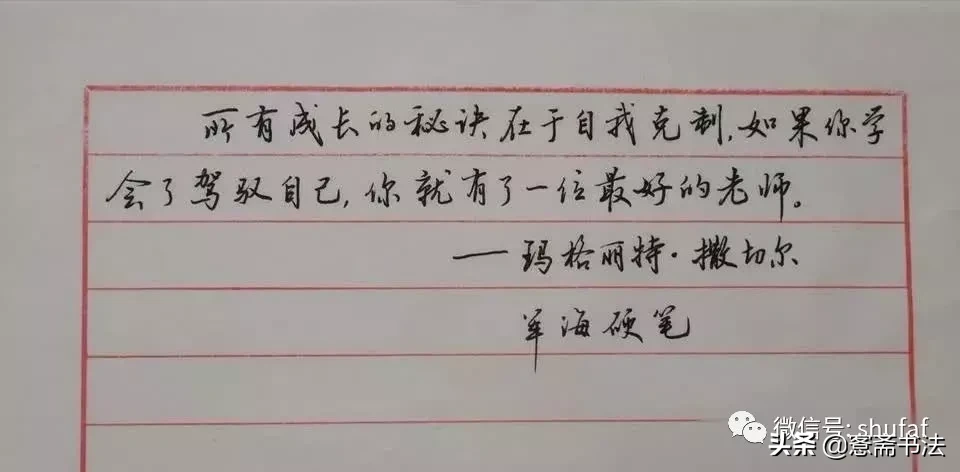 所有成长的秘诀在于自我克制,如果你学
会了驾驭自己,你就有了一位最好的老师。
—玛格丽特·撒切尔
军海硬笔
微信号: shufaf
头条@薏斋书法